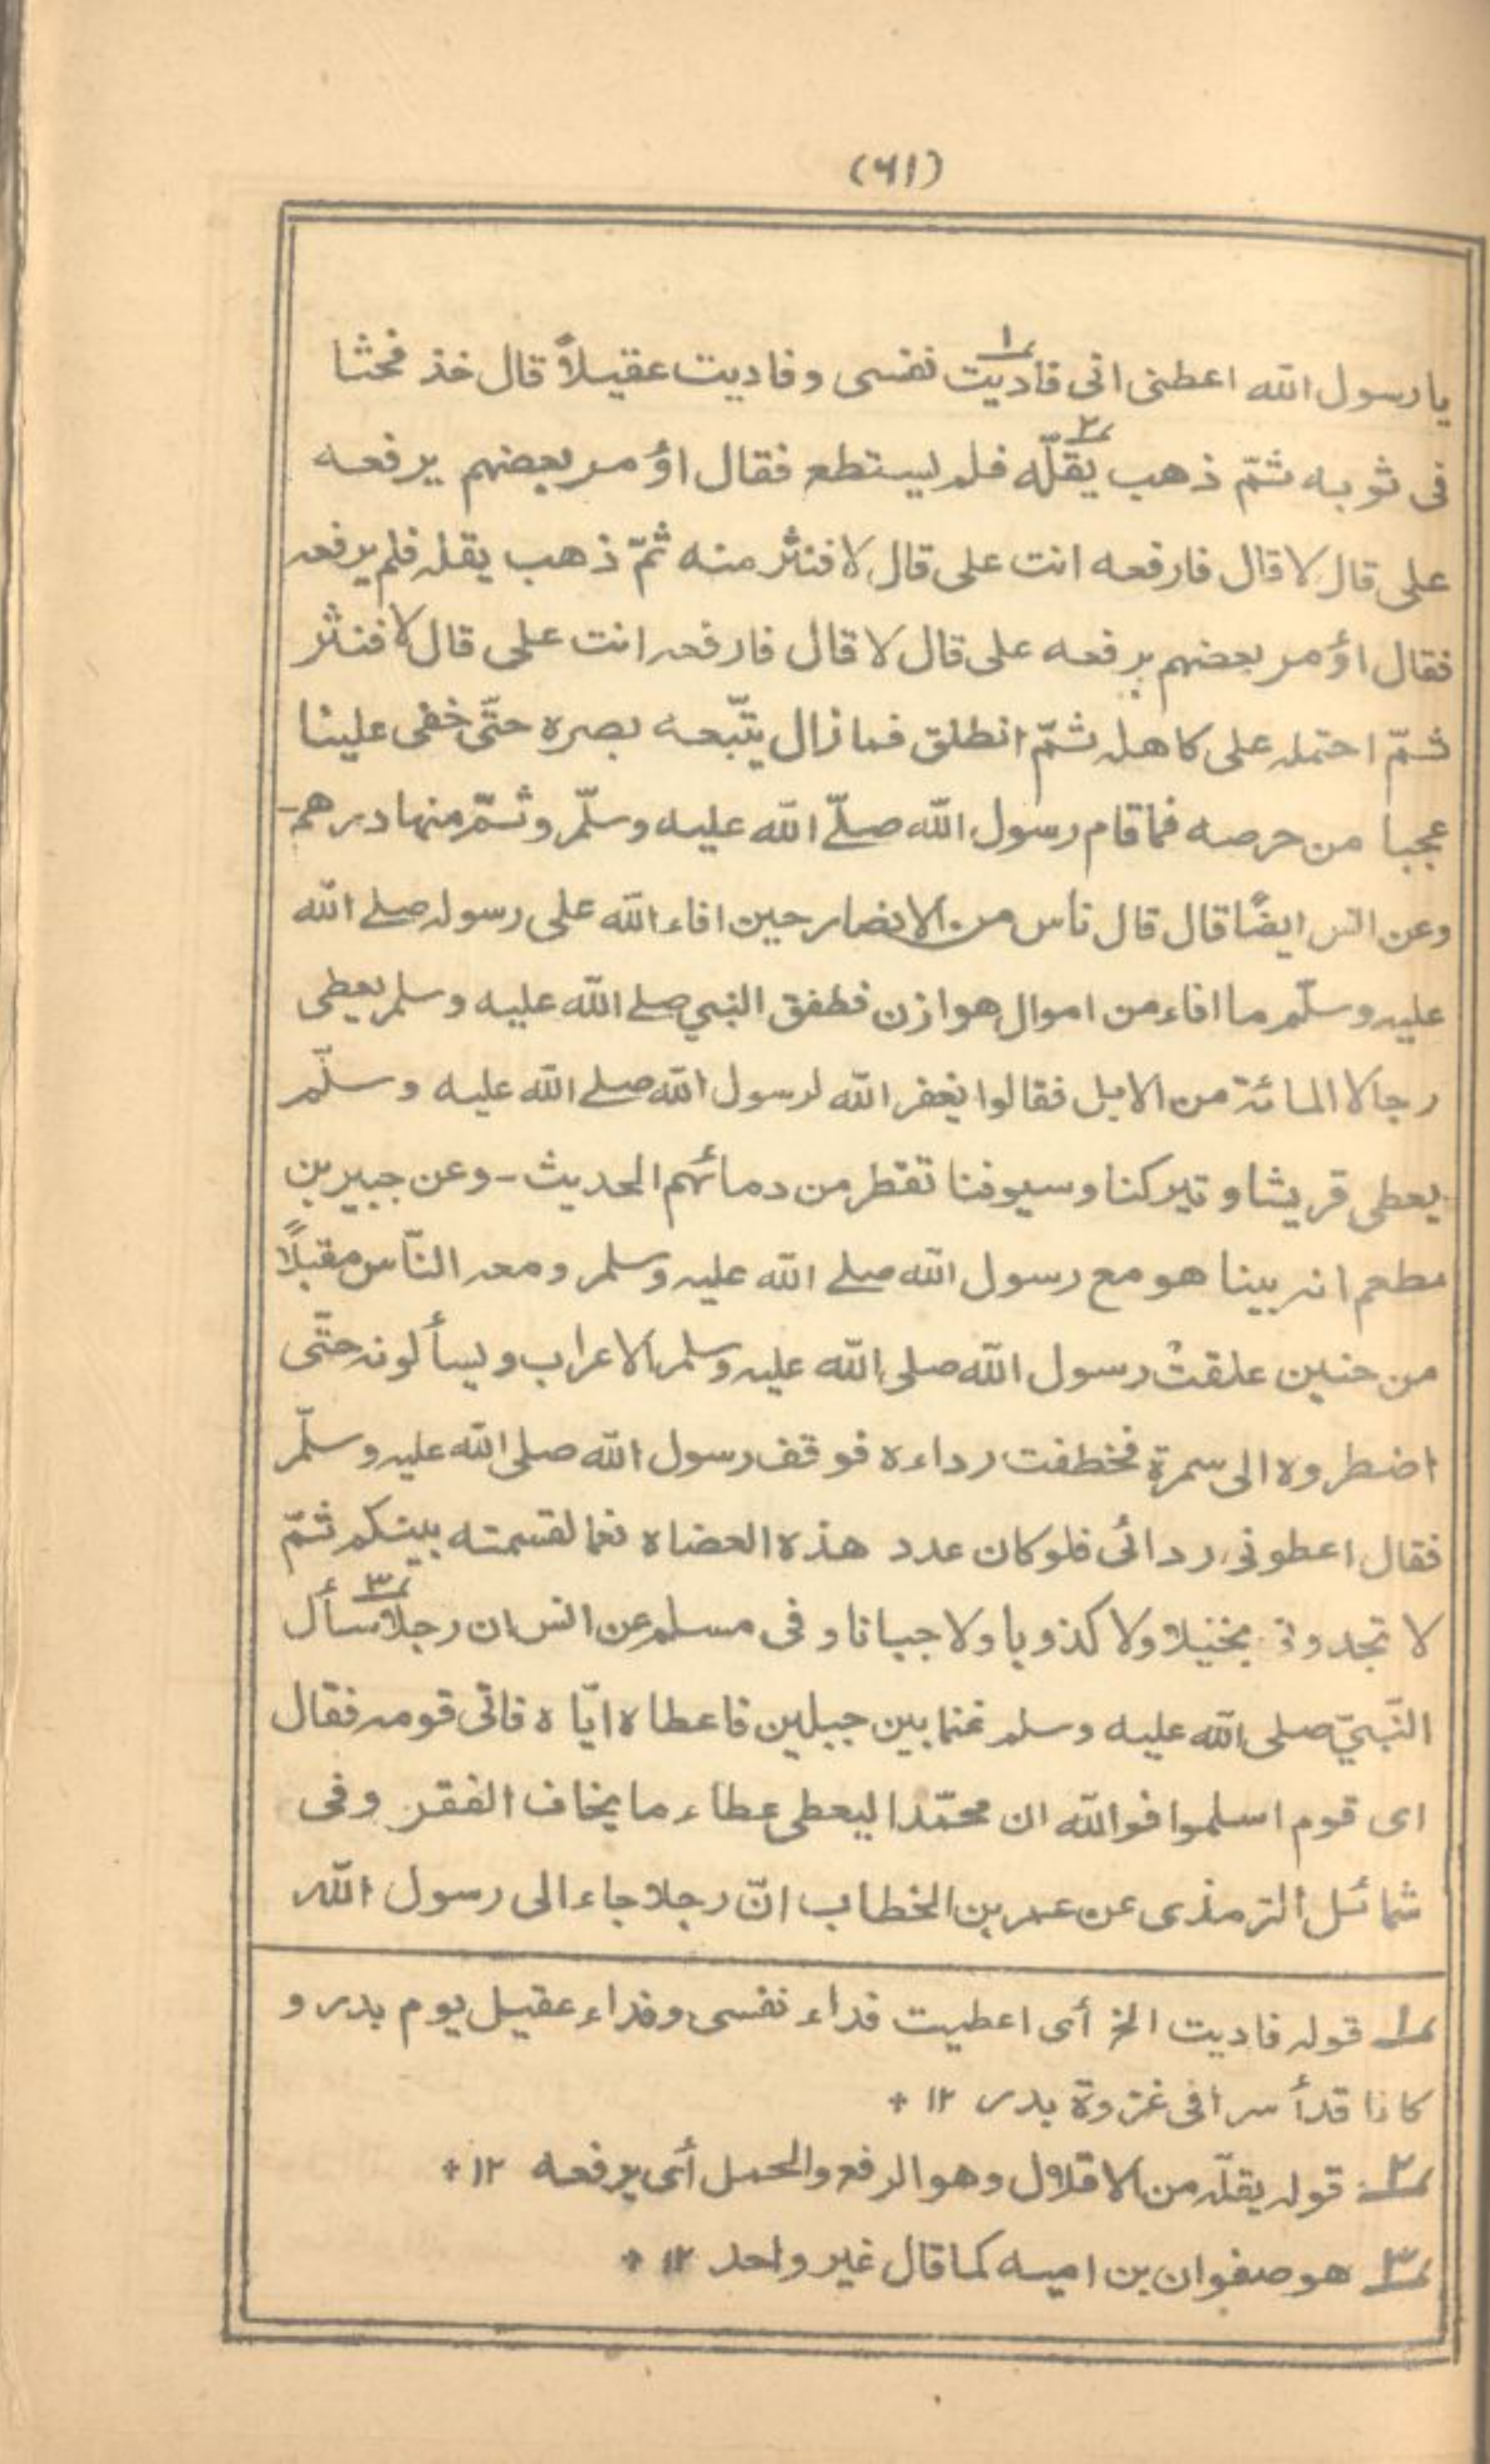 (٦١)
يا رسول الله اعطنى انى فاديت١ نفسى وفاديت عقيلاً قال خذ فحثا
فى ثوبه ثمّ ذهب يُقلّه٢ فلم يستطع فقال اؤمر بعضهم يرفعه
على قال لا قال فارفعه انت على قال لا فنثر منه ثمّ ذهب يقله فلم يرفعه
فقال اؤمر بعضهم يرفعه على قال لا قال فارفعه انت على قال لا فنثر
ثمّ احتمله على كاهله ثمّ انطلق فما زال يتّبعه بصره حتّى خفى علينا
عجبا من حرصه فما قام رسول الله صلّے الله عليه وسلّم وثمّ منها درهم-
وعن انس ايضًا قال قال ناس من الانصار حين افاء الله على رسوله صلے الله
عليه وسلّم ما افاء من اموال هوازن فطفق النبي صلے الله عليه وسلم يعطى
رجالا المائة من الابل فقالوا يغفر الله لرسول الله صلے الله عليه وسلّم
يعطى قريشا و تيركنا وسيوفنا تقطر من دمائهم الحديث - وعن جبير بن
مطعم انه بينا هو مع رسول الله صلے الله عليه وسلم ومعه النّاس مقبلًا
من حنين علقتْ رسول الله صلى الله عليه وسلم الاعراب ويسألونه حتّى
اضطروه الى سمرة فخطفت رداءه فوقف رسول الله صلى الله عليه وسلّم
فقال اعطونى ردائى فلو كان عدد هذه العضاه نعما لقسمته بينكم ثمّ
لا تجدونى بخيلا ولا كذوبا ولا جبانا وفى مسلم عن انس ان رجلا٣ سأل
النّبيّ صلى الله عليه وسلم غنما بين جبلين فاعطاه ايّاه فاتى قومه فقال
اى قوم اسلموا فوالله ان محمّدا ليعطى عطاء ما يخاف الفقر وفى
شمائل الترمذى عن عمر بن الخطاب انّ رجلا جاء الى رسول الله
١ قوله فاديت الخ أى اعطيت فداء نفسى وفداء عقيل يوم بدر و
كانا قد أسرا فى غزوة بدر ١٢ +
٢ قوله يقلّه من الاقلال وهو الرفع والحمل أى يرفعه ١٢ +
٣ هو صفوان بن اميه كما قال غير واحد ١٢ +